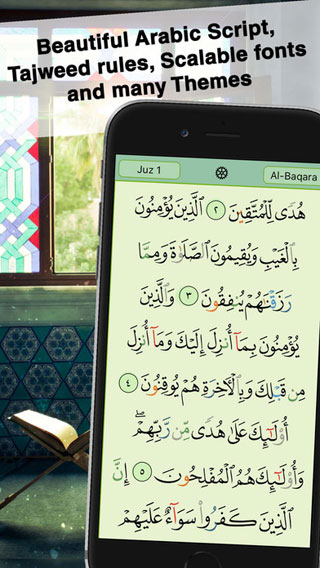 Beautiful Arabic Script,
Tajweed rules, Scalable fonts
and many Themes
Juz 1
Al-Baqara
هُدًى لِّلْمُتَّقِينَ ٢ الَّذِينَ يُؤْمِنُونَ
بِالْغَيْبِ وَيُقِيمُونَ الصَّلَاةَ وَمِمَّا
رَزَقْنَاهُمْ يُنفِقُونَ ٣ وَالَّذِينَ
يُؤْمِنُونَ بِمَا أُنزِلَ إِلَيْكَ وَمَا أُنزِلَ
مِن قَبْلِكَ وَبِالْآخِرَةِ هُمْ يُوقِنُونَ ٤
أُولَٰئِكَ عَلَىٰ هُدًى مِّن رَّبِّهِمْ ۖ
وَأُولَٰئِكَ هُمُ الْمُفْلِحُونَ ٥ إِنَّ
الَّذِينَ كَفَرُوا سَوَاءٌ عَلَيْهِمْ